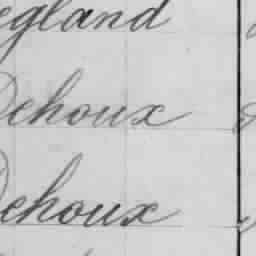 egland
Dehoux
Dehoux